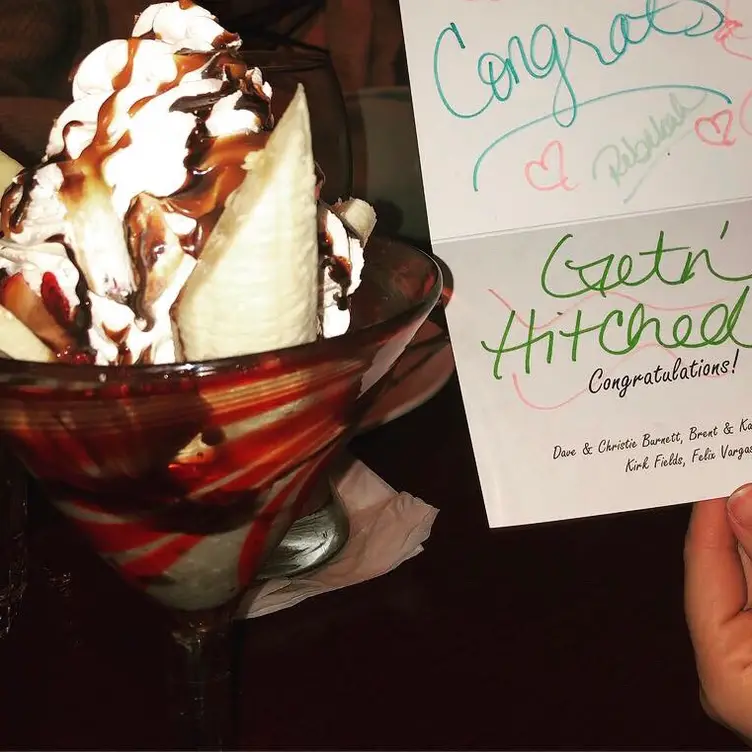 Congrats
Rebekah
Getn'
Hitched
Congratulations!
Dave & Christie Burnett, Brent & Ka
Kirk Fields, Felix Vargas